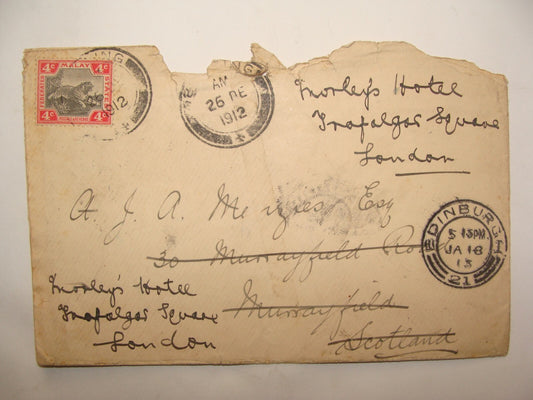 FEDERATED MALAY STATES
4c 4c
4c 4c
PING
1912
PING
AM
26 DE
1912
Morley's Hotel
Trafalgar Square
London
A. J. A. Menzies Esq
30 Murrayfield Road
Murrayfield
Scotland
Morley's Hotel
Trafalgar Square
London
EDINBURGH
5 15PM
JA 18
13
21